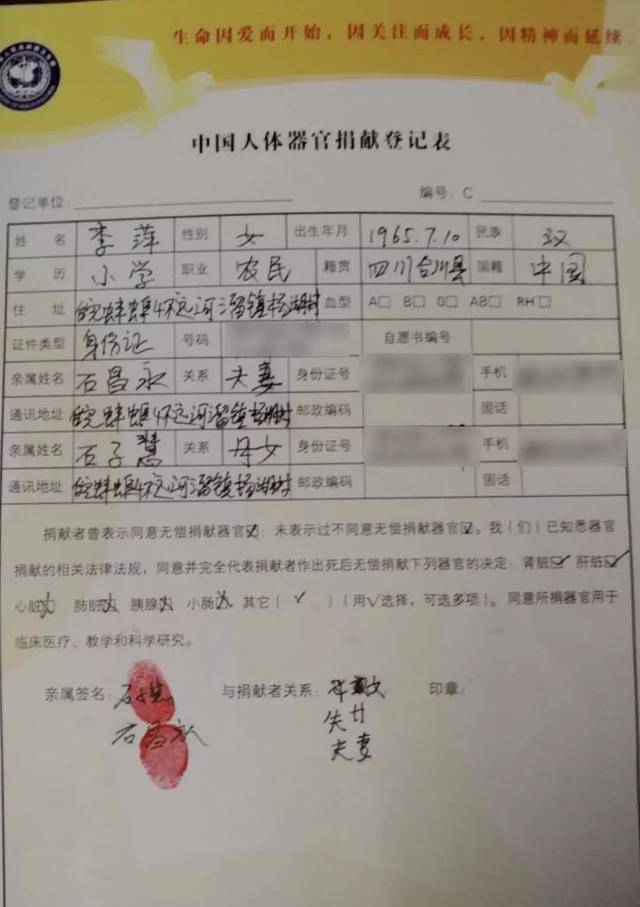 生命因爱而开始，因关注而成长，因精神而延续
中国人体器官捐献登记表
登记单位： 编号：C
姓名 李萍 性别 女 出生年月 1965.7.10 民族 汉
学历 小学 职业 农民 籍贯 四川合川县 国籍 中国
住址 皖蚌埠怀远河溜镇杨湖村 血型 A□ B□ O□ AB□ RH□
证件类型 身份证 号码 自愿书编号
亲属姓名 石昌永 关系 夫妻 身份证号 手机
通讯地址 皖蚌埠怀远河溜镇杨湖村 邮政编码 固话
亲属姓名 石子慧 关系 母女 身份证号 手机
通讯地址 皖蚌埠怀远河溜镇杨湖村 邮政编码 固话
捐献者曾表示同意无偿捐献器官☑；未表示过不同意无偿捐献器官☑。我（们）已知悉器官
捐献的相关法律法规，同意并完全代表捐献者作出死后无偿捐献下列器官的决定：肾脏☑ 肝脏☑
心脏☑ 肺脏☑ 胰腺☑ 小肠☑ 其它（✓）（用√选择，可选多项）。同意所捐器官用于
临床医疗、教学和科学研究。
亲属签名： 与捐献者关系： 印章：
石昌永
夫妻